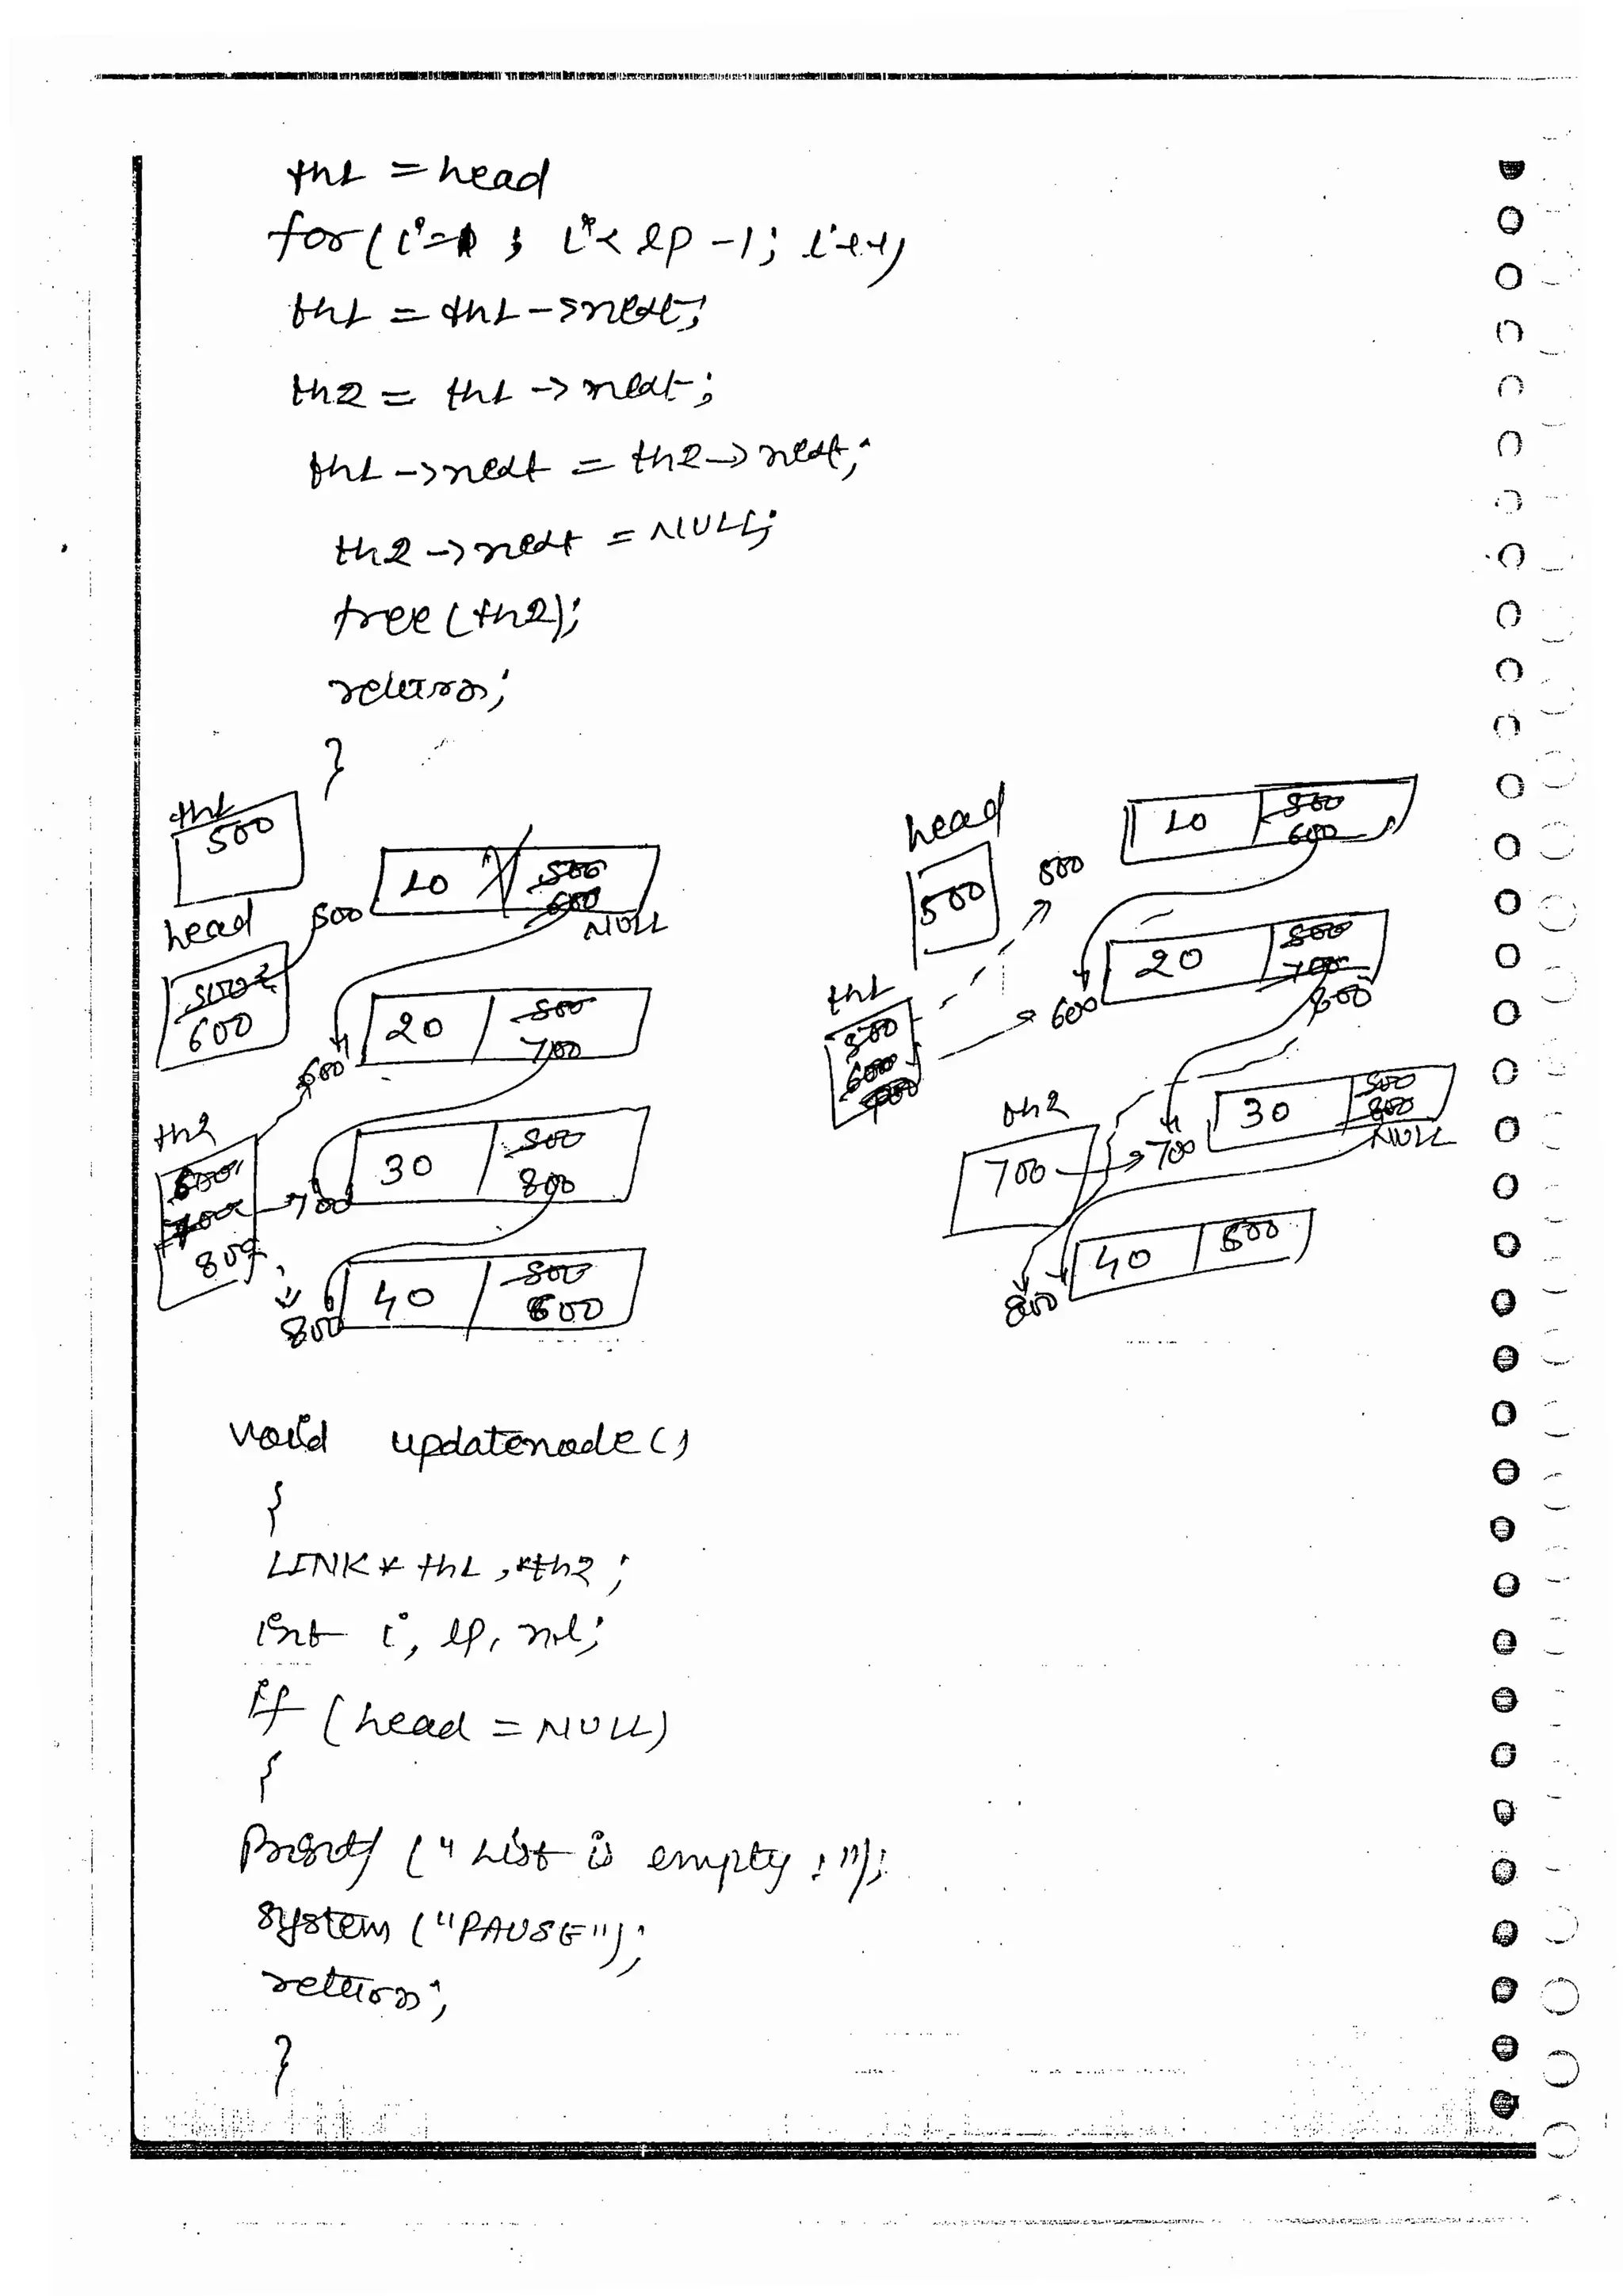 th1 = head
for(i=1; i< lp -1; i++)
th1 = th1->next;
th2 = th1 -> next;
th1 ->next = th2->next;
th2 ->next = NULL;
free (th2);
return;
}
th1
500
10
500
600
NULL
head
500
500
600
20
500
700
600
th2
600
700
800
700
30
500
800
800
40
500
600
head
500
500
10
500
600
th1
500
600
600
20
500
700
800
th2
700
700
30
500
800
NULL
800
40
500
void updatenode()
{
LINK * th1, *th2;
int i, lp, nl;
if (head = NULL)
{
Printf ("List is empty!");
system ("PAUSE");
return;
}